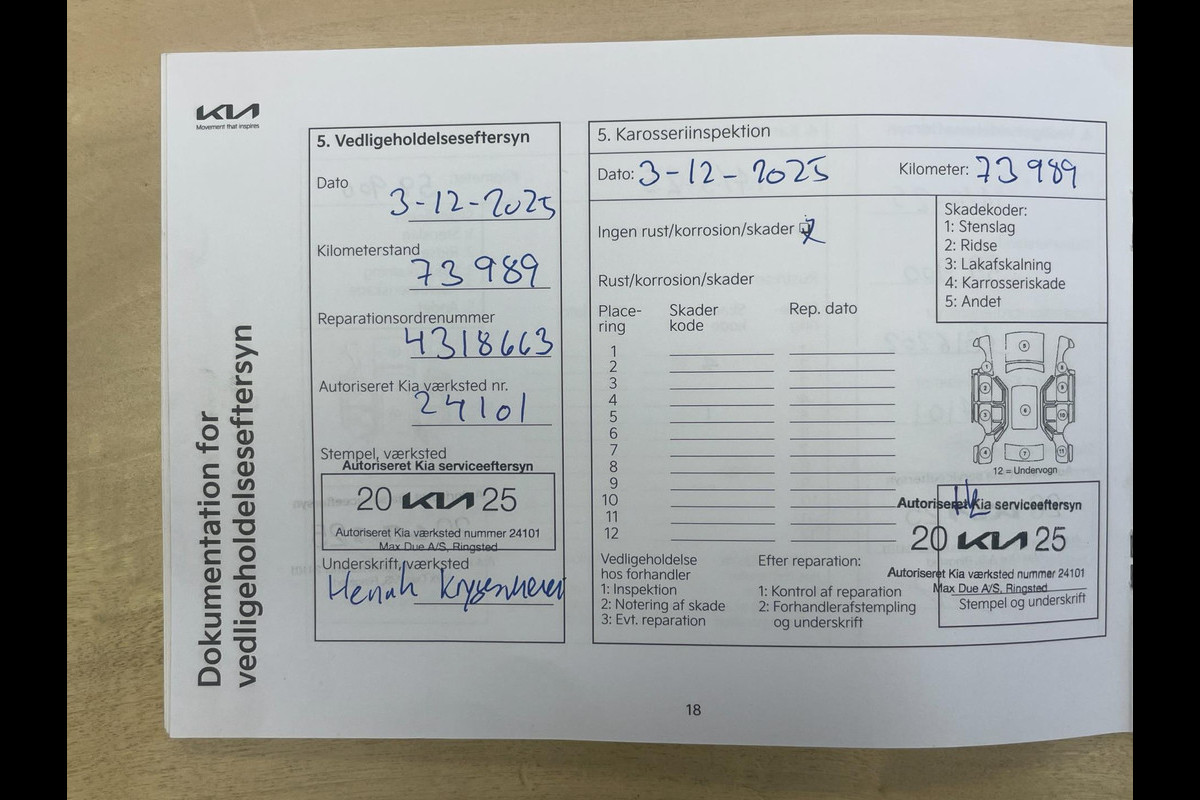 KIA
Movement that inspires
Dokumentation for
vedligeholdelseseftersyn
5. Vedligeholdelseseftersyn
Dato
3-12-2025
Kilometerstand
73989
Reparationsordrenummer
4318663
Autoriseret Kia værksted nr.
24101
Stempel, værksted
Autoriseret Kia serviceeftersyn
20 KIA 25
Autoriseret Kia værksted nummer 24101
Max Due A/S, Ringsted
Underskrift, værksted
5. Karosseriinspektion
Dato: 3-12-2025 Kilometer: 73989
Ingen rust/korrosion/skader
Skadekoder:
1: Stenslag
2: Ridse
3: Lakafskalning
4: Karrosseriskade
5: Andet
Rust/korrosion/skader
Place-
ring
Skader
kode
Rep. dato
1
2
3
4
5
6
7
8
9
10
11
12
12 = Undervogn
Vedligeholdelse
hos forhandler
1: Inspektion
2: Notering af skade
3: Evt. reparation
Efter reparation:
1: Kontrol af reparation
2: Forhandlerafstempling
og underskrift
Autoriseret Kia serviceeftersyn
20 KIA 25
Autoriseret Kia værksted nummer 24101
Max Due A/S, Ringsted
Stempel og underskrift
18